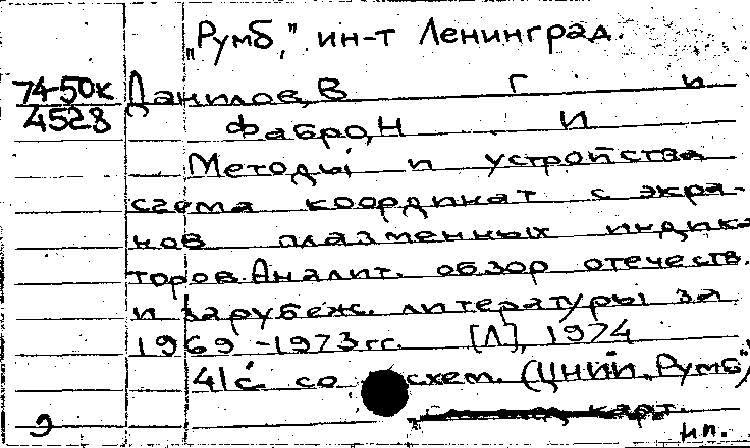 „Румб," ин-т Ленинград.
74-50к
4528
Данилов, В Г и
Фабро, Н И
Методы и устройства
съема координат с экра-
нов плазменных индика-
торов. Аналит. обзор отечеств.
и зарубеж. литературы за
1969-1973 гг. [Л], 1974
41 с со схем. (ЦНИИ „Румб")
карт.
9
н.п.